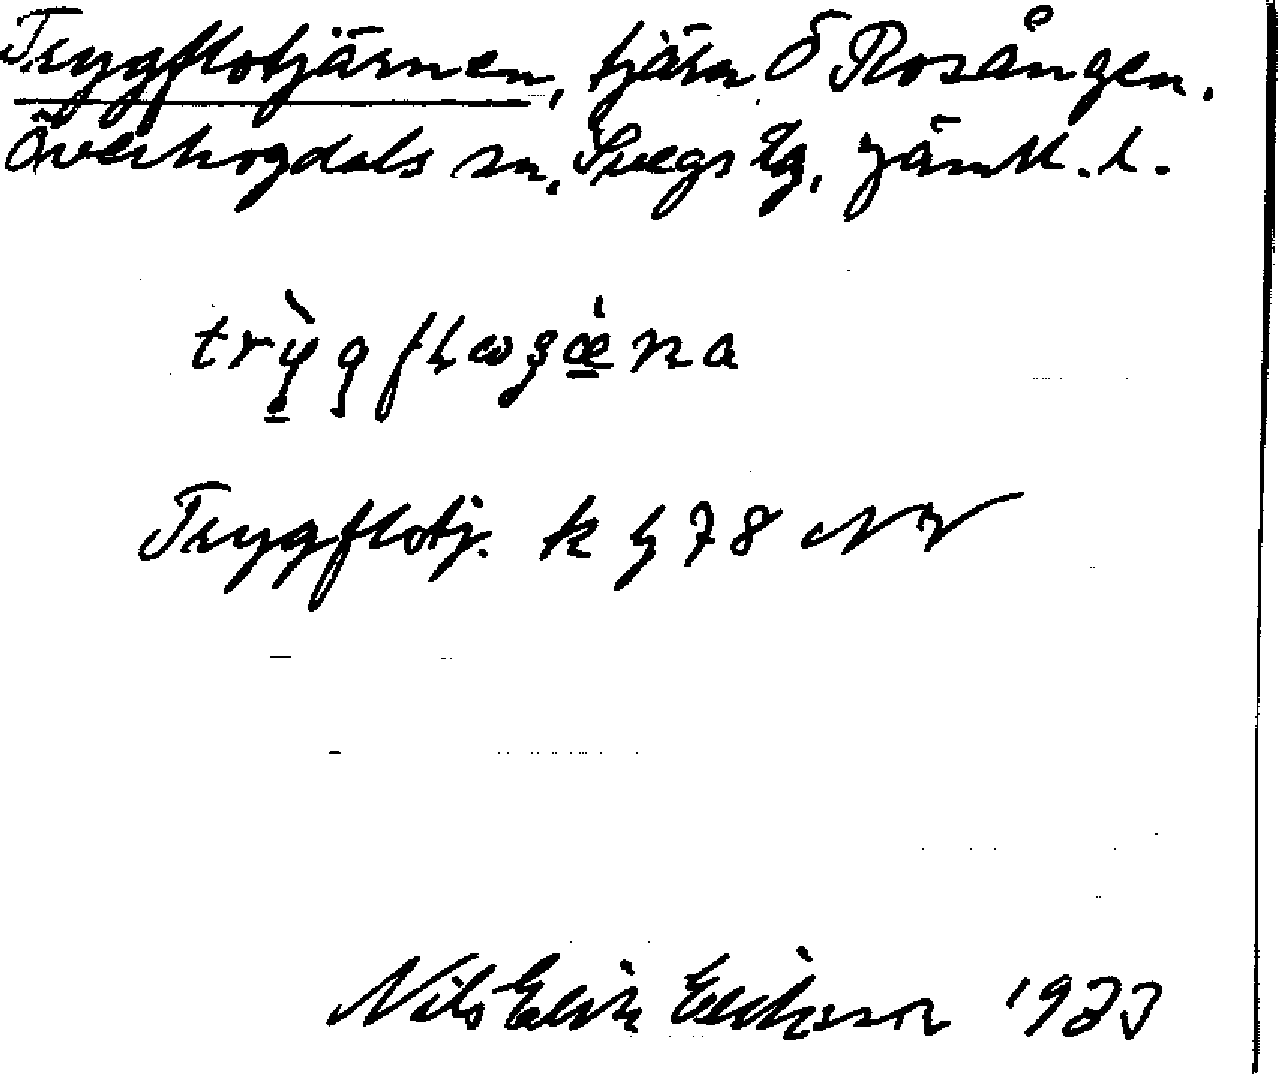 Trygflotjärnen, tjärn Ö Rosången.
Överhogdals sn, Svegs tg, Jämtl. l.
Trygflotj. k 78 NV
Nils Erik Eriksson 1933